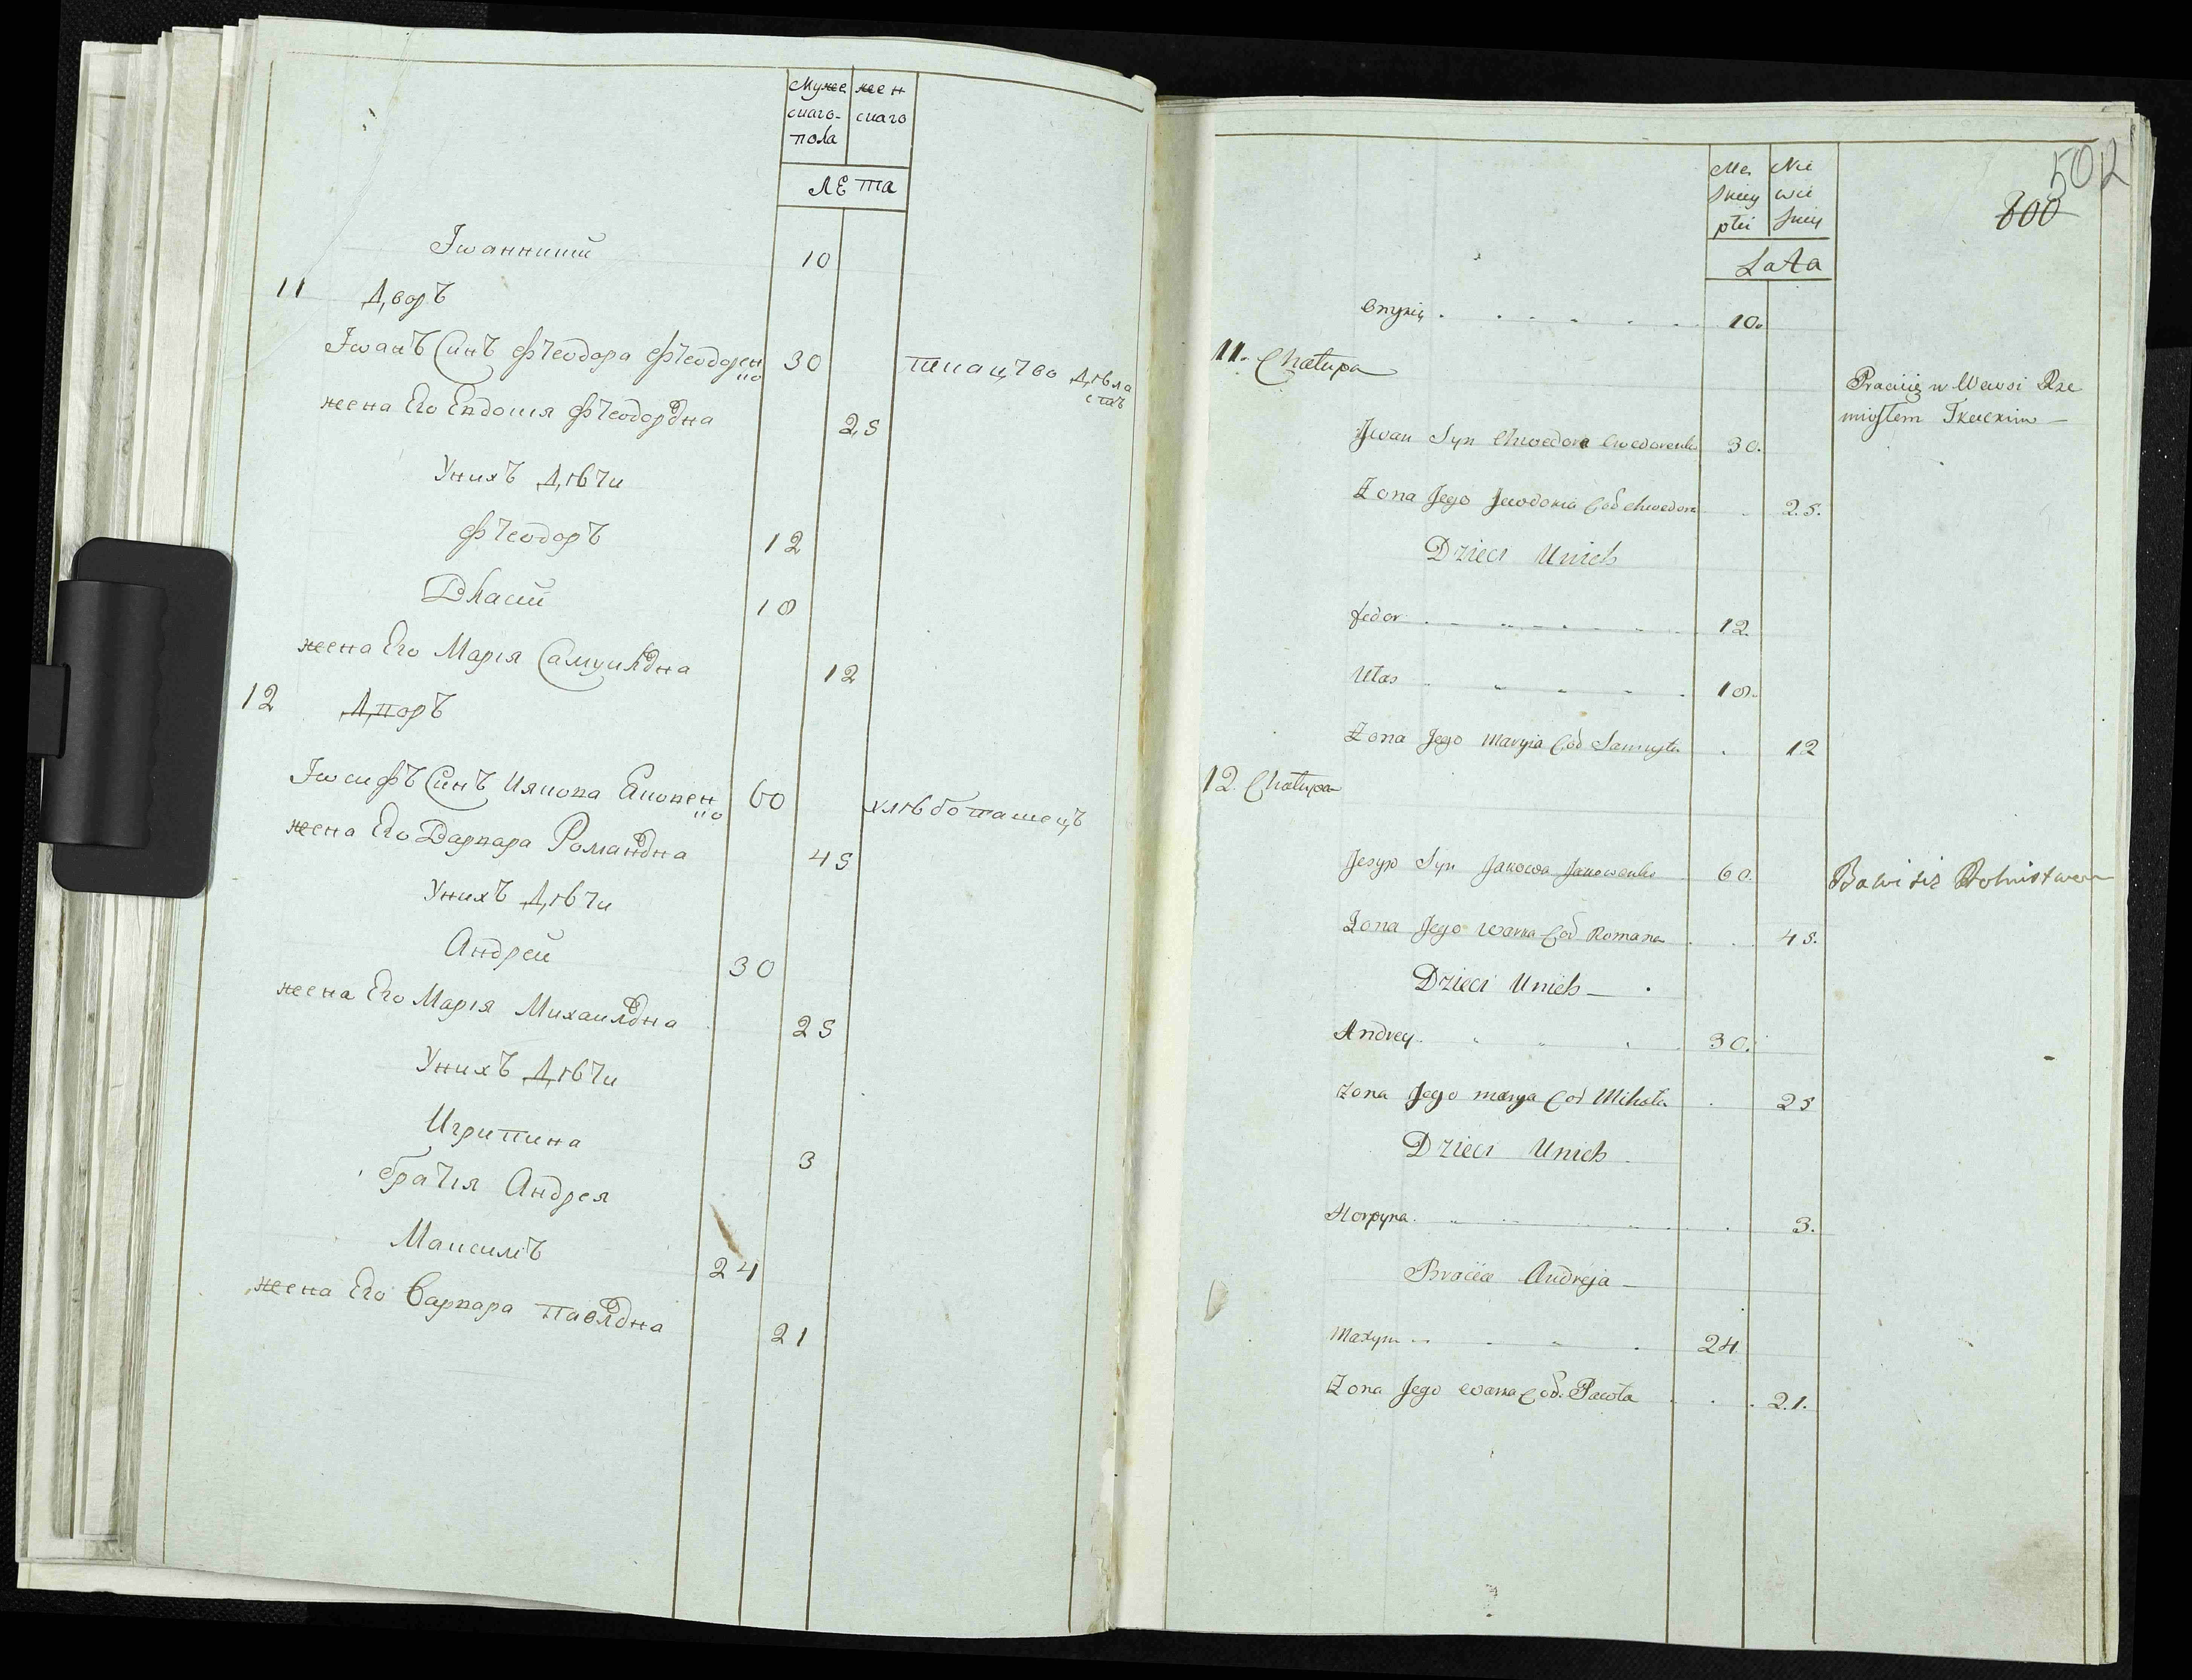 Муже жен
скаго- скаго
пола
ЛЕта
Іоанникий 10
11 Дворъ
Іоанъ Синъ Ѳеодора Ѳеодорен 30 ткацтво Дѣла
ко етъ
жена Его Евдокия Ѳеодоровна 25
Унихъ Дѣти
Ѳеодоръ 12
Власий 18
жена Его Марія Самуиловна 12
12 Дворъ
Іосифъ Синъ Иякова Яковен 60 хлѣбопашецъ
ко
жена Его Варвара Романовна 45
Унихъ Дѣти
Андрей 30
жена Его Марія Михаиловна 25
Унихъ Дѣти
Игрипина 3
братія Андрея
Максимъ 24
жена Его Варвара Павловна 21
502
800
Mę Nie
skiey wie
płci skiey
LaTa
Onyki 10.
11. Chałupa
Pracuie w Wewsi Rze
miosłem Tkackim
Jwan Syn Chwedora Chwedorenko 30.
Zona Jego Jewdokia Cod Chwedora 25.
Dzieci Unich
fedor 12.
Ułas 18.
Zona Jego Maryia Cod Samuyła 12
12. Chałupa
Jesyp Syn Jakowa Jakowenko 60. Bawi się Rolnistwem
Zona Jego Warka Cod Romana 45.
Dzieci Unich
Andrey 30.
Zona Jego marya Cod Mihała 25
Dzieci Unich
Horpyna 3.
Bracia Andreja
Maxym 24
Zona Jego warka Cod. Pawła 21.